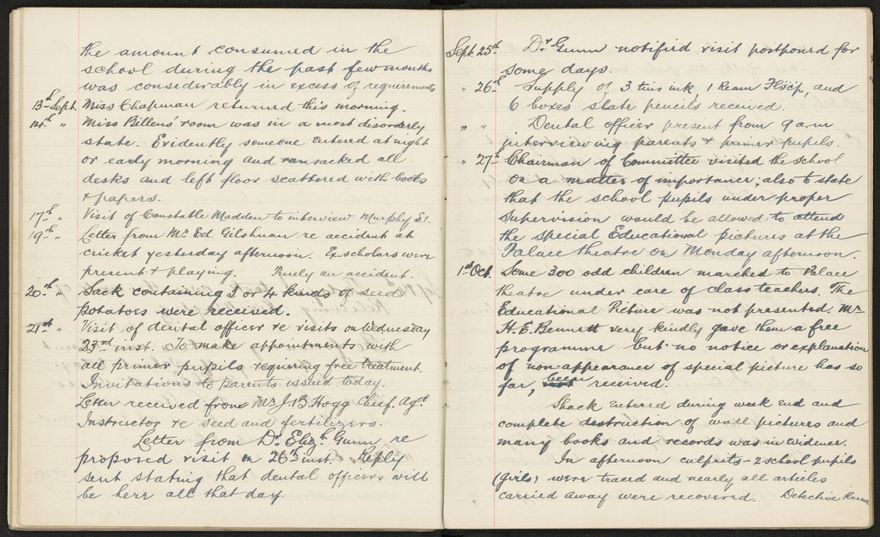 the amount consumed in the
school during the past few months
was considerably in excess of requirements
13th Sept. Miss Chapman returned this morning.
14th " Miss Billens' room was in a most disorderly
state. Evidently someone entered at night
or early morning and ransacked all
desks and left floor scattered with books
& papers.
17th " Visit of Constable Madden to interview Murphy
19th " Letter from Mr Ed. Gilshnan re accident at
cricket yesterday afternoon. Ex scholars were
present & playing. Purely an accident.
20th " Sack containing 3 or 4 kinds of seed
potatoes were received.
21st " Visit of dental officer re visits on Wednesday
23rd inst. To make appointments with
all primer pupils requiring free treatment.
Invitations to parents issued today.
Letter received from Mr J.B. Hogg Chief. Agt.
Instructor re seed and fertilizers.
Letter from Dr. Elizh Gunn re
proposed visit on 26th inst. Reply
sent stating that dental officers will
be here all that day.
Sept. 25th. Dr Gunn notified visit postponed for
some days.
" 26th Supply of 3 tins ink, 1 Ream Flscp, and
6 boxes slate pencils received.
" " Dental officer present from 9 a.m
interviewing parents & primer pupils.
" 27th Chairman of Committee visited the school
on a matter of importance; also to state
that the school pupils under proper
supervision would be allowed to attend
the special Educational pictures at the
Palace theatre on Monday afternoon.
1st Oct. Some 300 odd children marched to Palace
theatre under care of class teachers. The
Educational Picture was not presented. Mr
H. E. Bennett very kindly gave them a free
programme but no notice or explanation
of non appearance of special picture has so
far, been received.
Shack entered during week end and
complete destruction of wall pictures and
many books and records was in evidence.
In afternoon culprits - 2 school pupils
(girls) were traced and nearly all articles
carried away were recovered. Detective